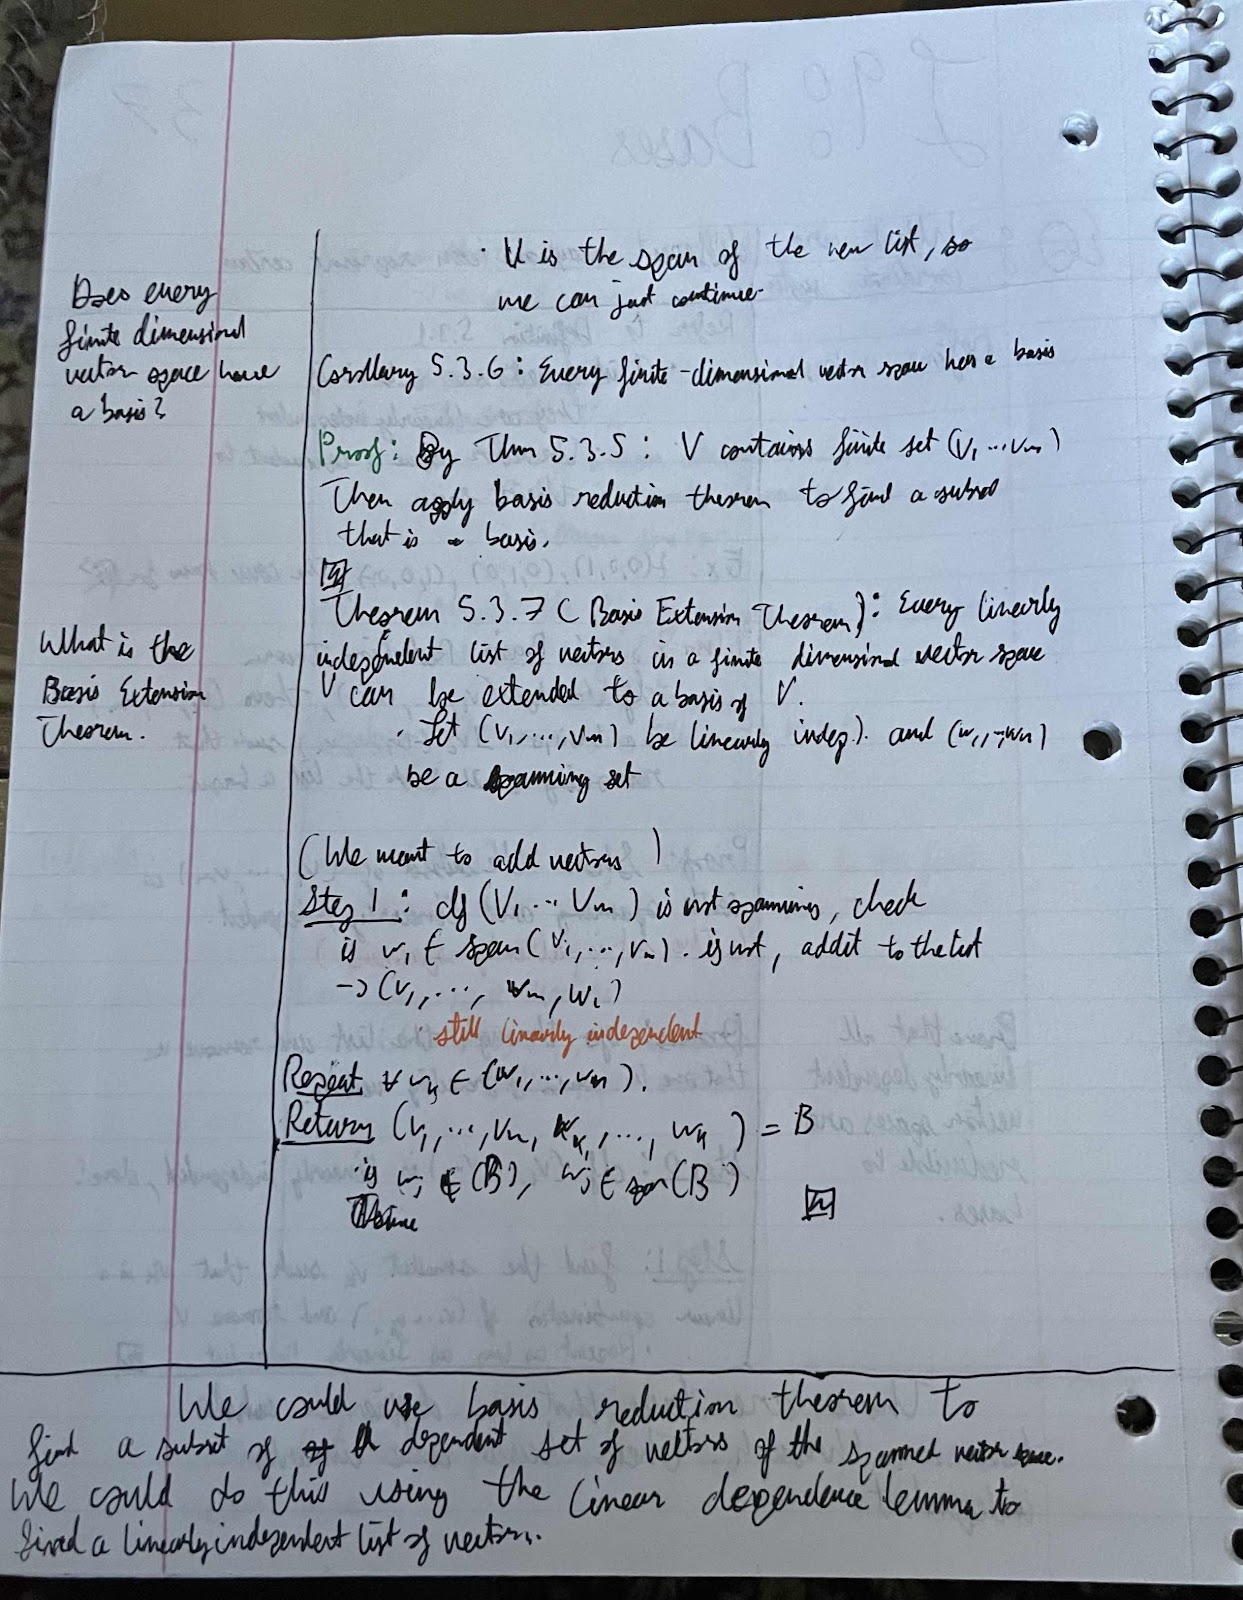 · U is the span of the new list, so
we can just continue.
Does every
finite dimensional
vector space have
a basis?
Corollary 5.3.6: Every finite-dimensional vector space has a basis
Proof: By Thm 5.3.5: V contains finite set (V₁ ... Vm)
Then apply basis reduction theorem to find a subset
that is a basis.
What is the
Basis Extension
Theorem.
Theorem 5.3.7 (Basis Extension Theorem): Every linearly
independent list of vectors in a finite dimensional vector space
V can be extended to a basis of V.
· Let (v₁, ..., vm) be linearly indep. and (w₁, ..., wn)
be a spanning set
(We want to add vectors)
Step 1: If (V₁ ... Vm) is not spanning, check
is w₁ ∈ span(v₁, ..., vm). if not, add it to the list
→ (v₁, ..., vm, w₁)
still linearly independent
Repeat ∀ wk ∈ (w₁, ..., wn).
Return (v₁, ..., vm, wk, ..., wk) = B
if wj ∉ (B), wj ∈ span(B)
We could use basis reduction theorem to
find a subset of a dependent set of vectors of the spanned vector space.
We could do this using the linear dependence lemma to
find a linearly independent list of vectors.